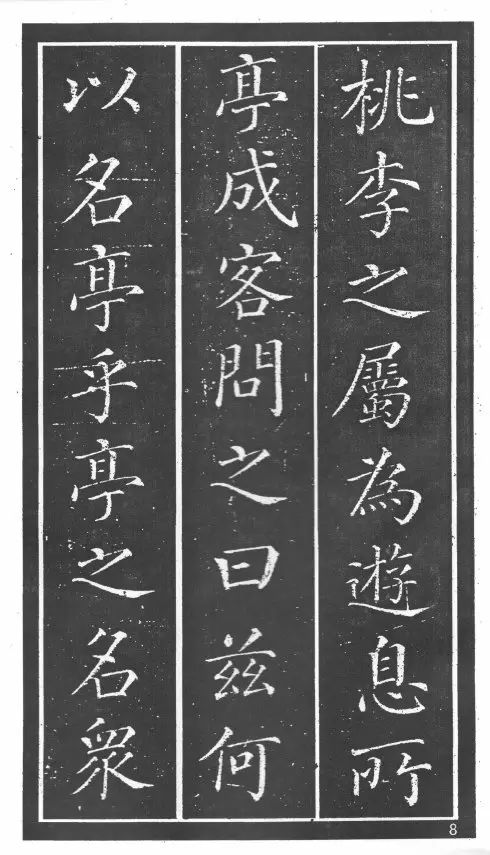 桃李之屬為遊息所
亭成客問之曰茲何
以名亭乎亭之名衆
8